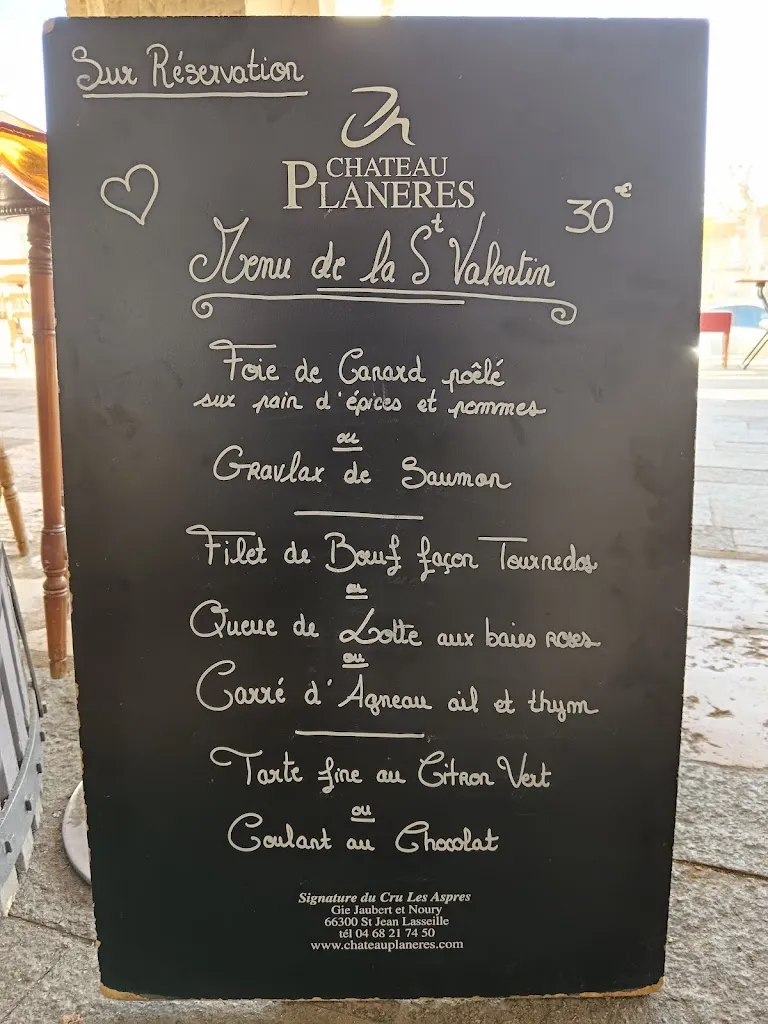 Sur Réservation
CHATEAU
PLANERES
30€
Menu de la St Valentin
Foie de Canard poêlé
sur pain d'épices et pommes
ou
Gravlax de Saumon
Filet de Bœuf façon Tournedos
ou
Queue de Lotte aux baies roses
ou
Carré d'Agneau ail et thym
Tarte fine au Citron Vert
ou
Coulant au Chocolat
Signature du Cru Les Aspres
Gie Jaubert et Noury
66300 St Jean Lasseille
tél 04 68 21 74 50
www.chateauplaneres.com